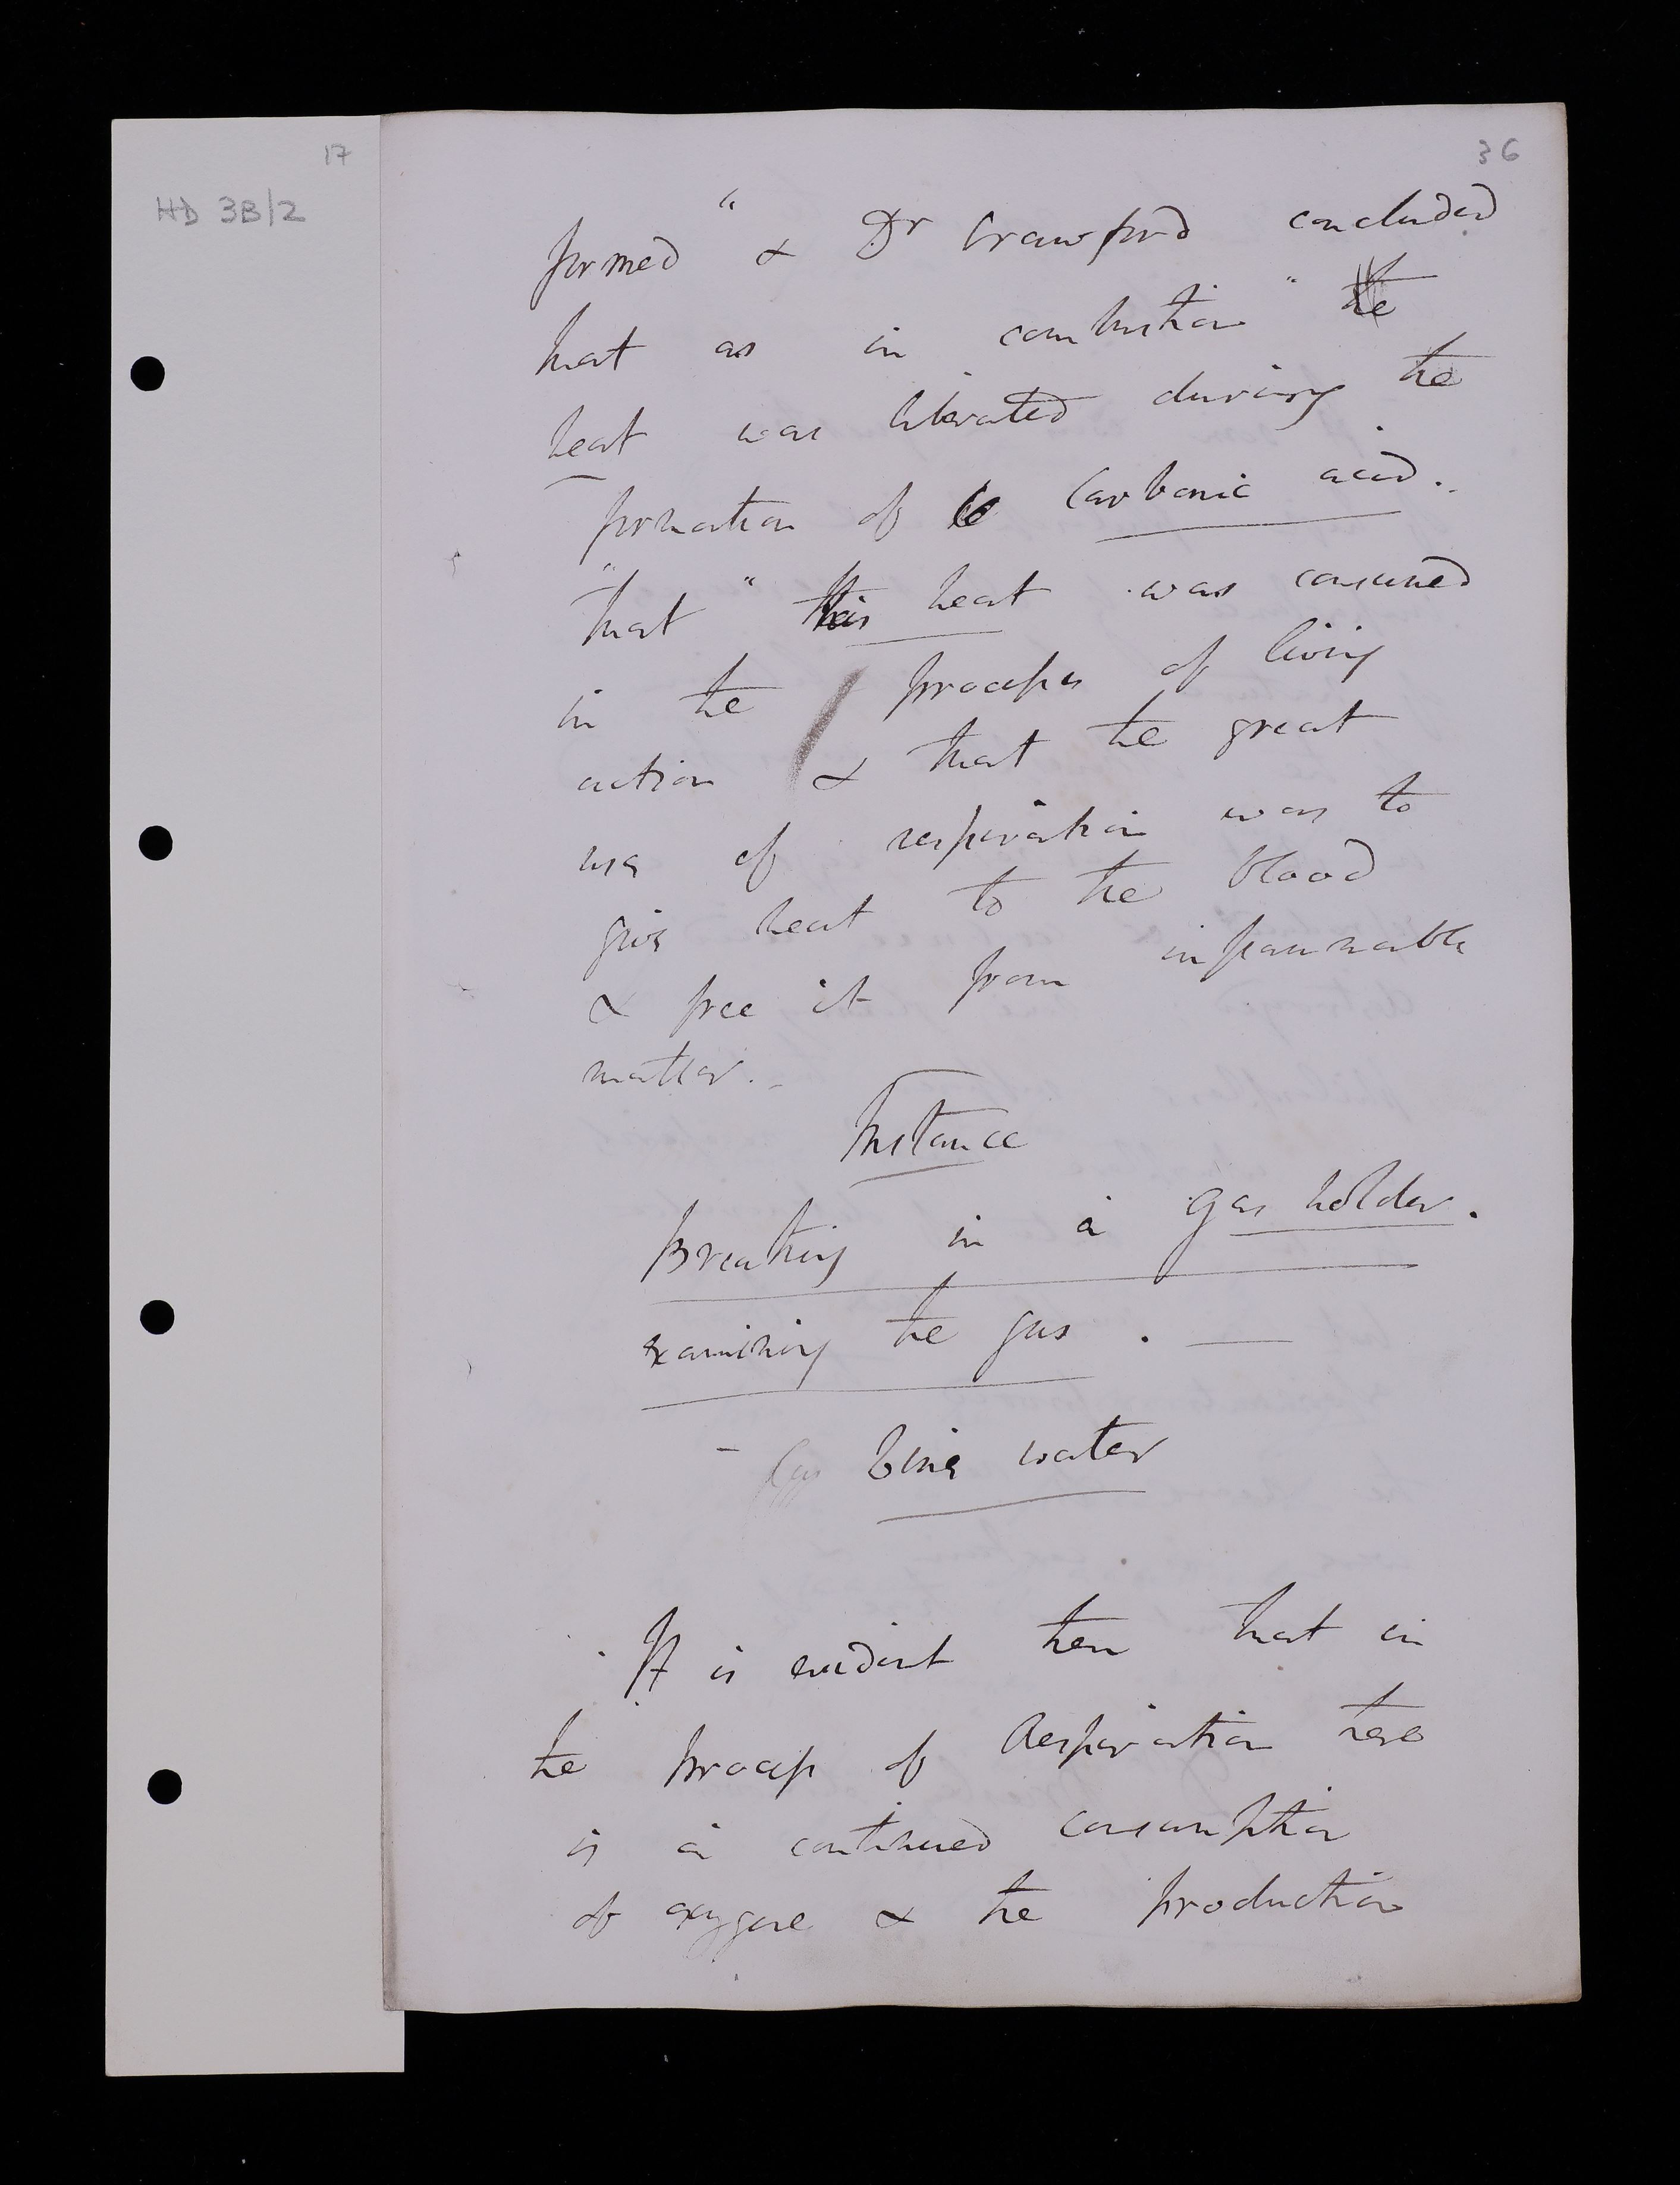 17
HD 3B/2
36
formed " & Dr Crawford concluded
that as in combustion " the
heat was liberated during the
formation of Carbonic acid.
" that " this heat was consumed
in the processes of living
action & that the great
use of respiration was to
give heat to the blood
& free it from inflammable
matter. -
Instance
Breathing in a gas holder.
examining the gas . —
- lime water
It is evident then that in
the process of Respiration there
is a continued consumption
of oxygene & the production